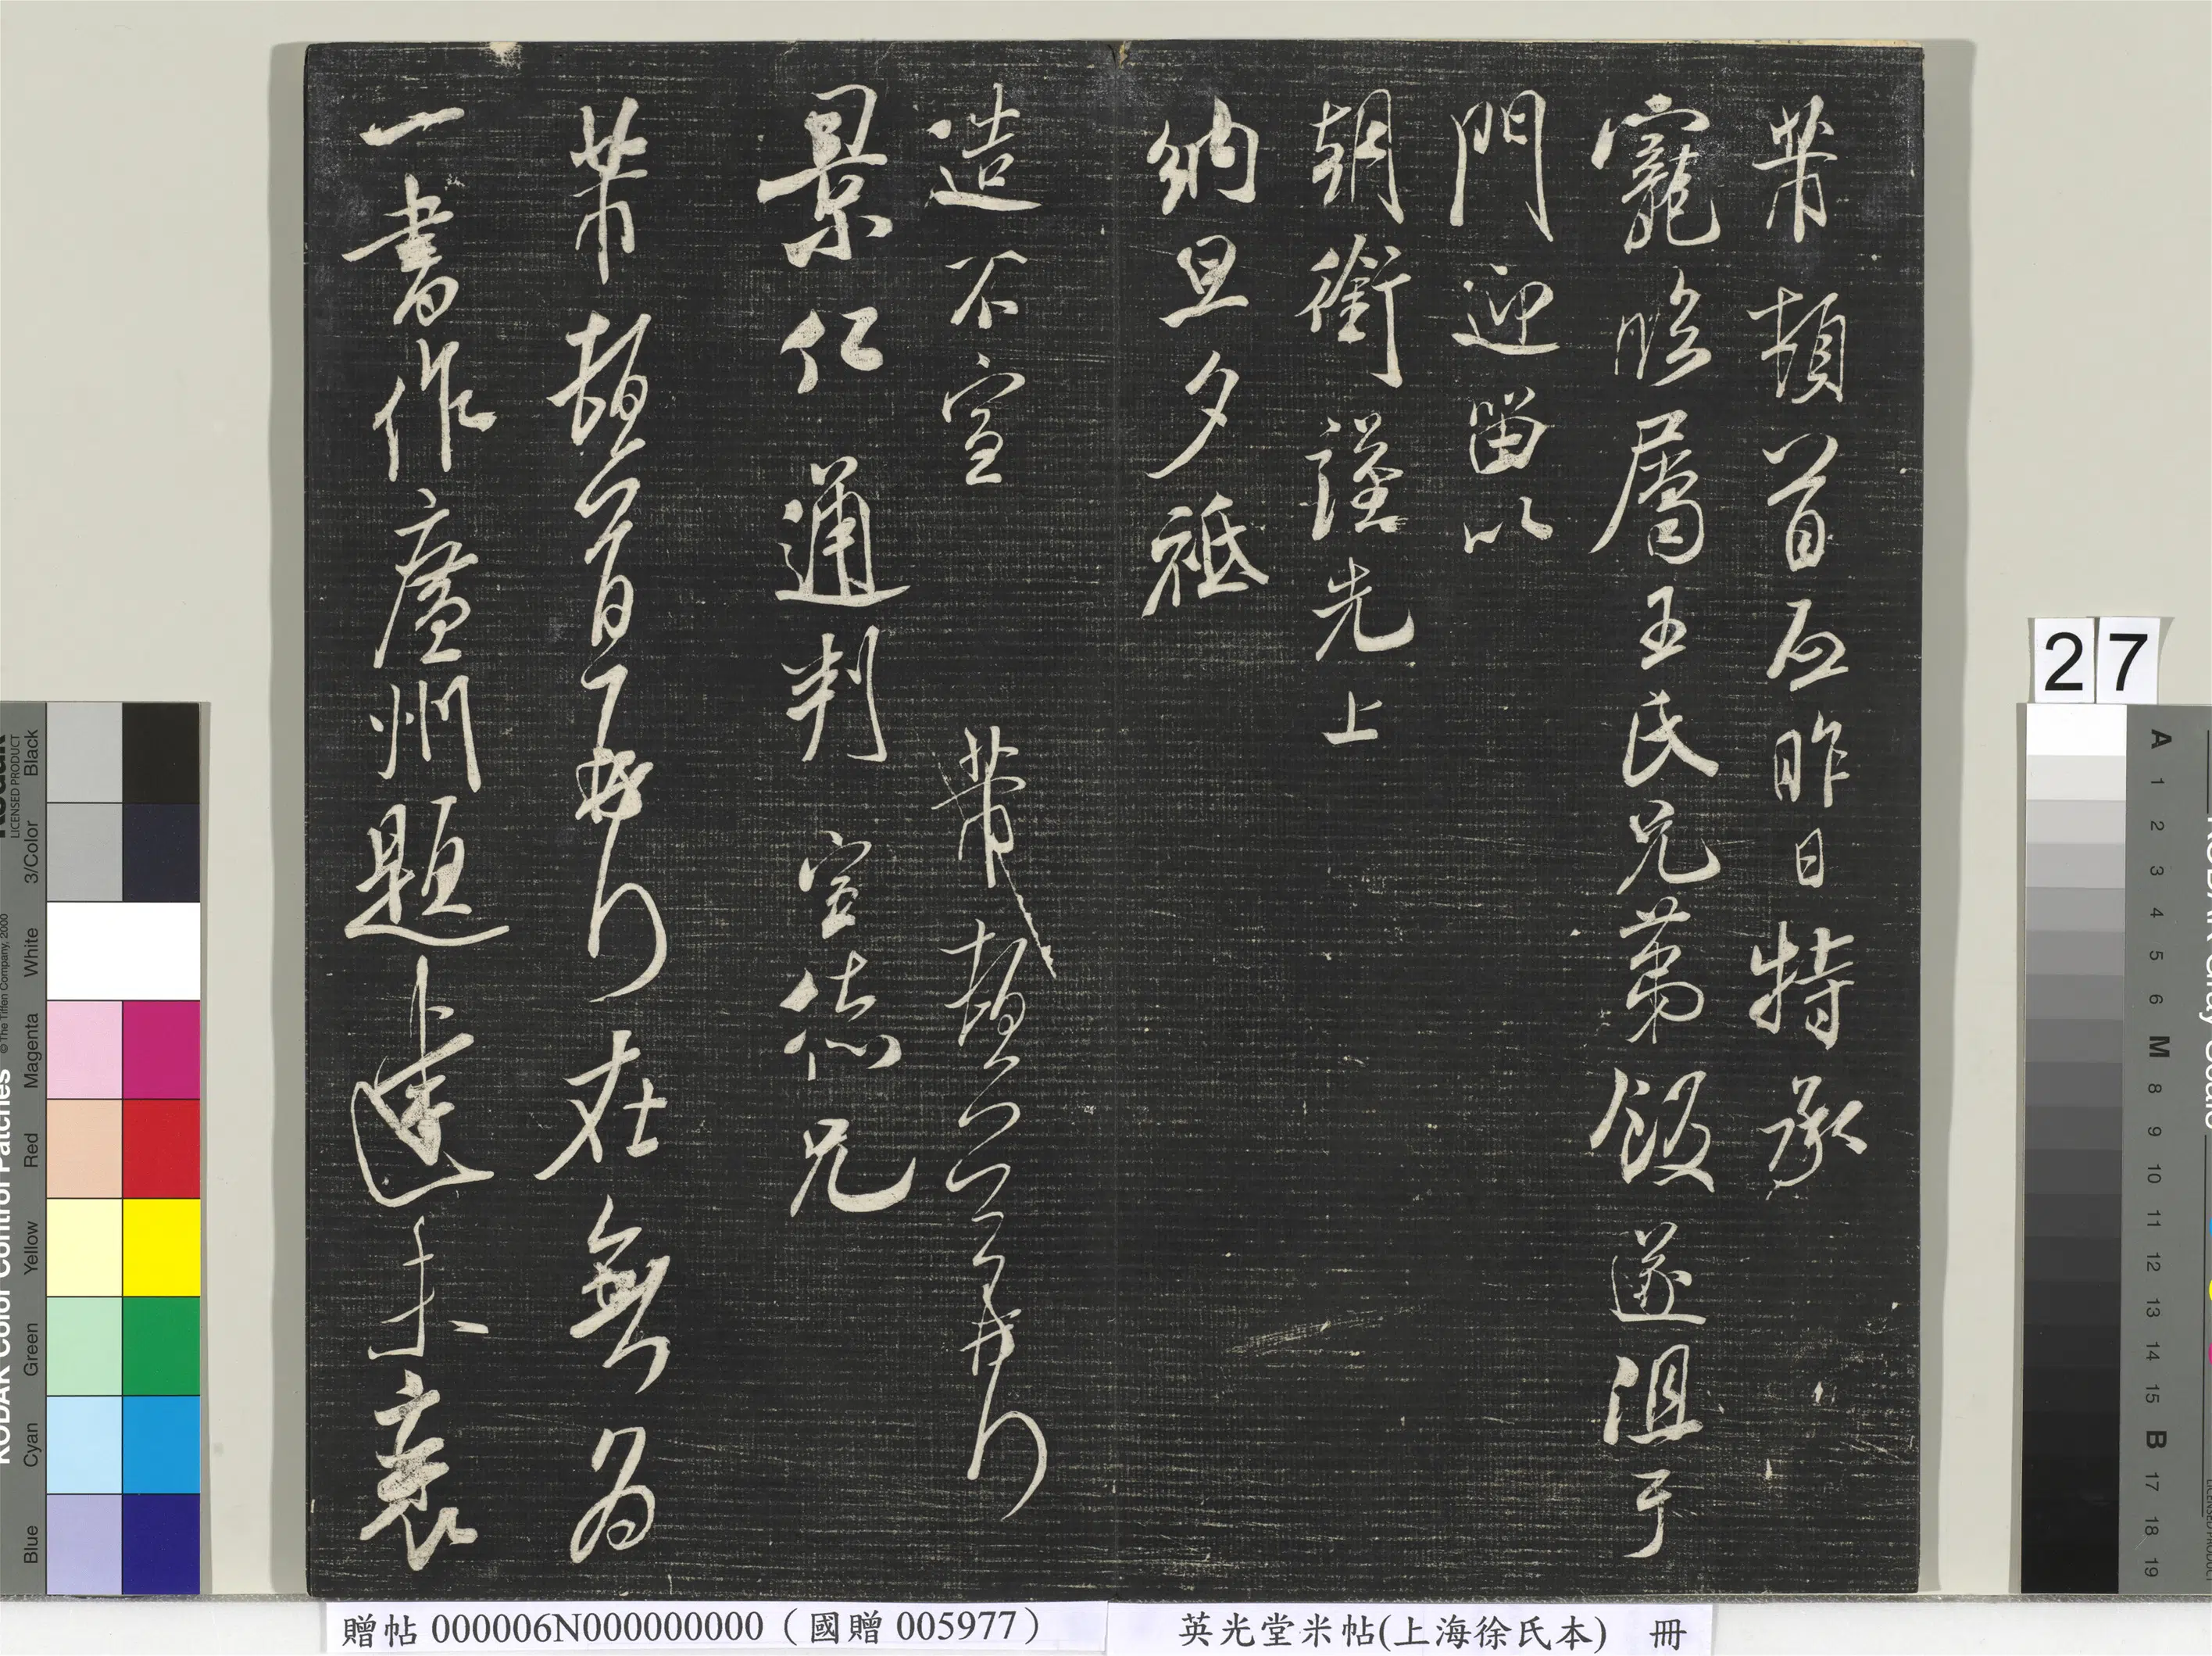 芾頓首再昨日特承
寵臨屬王氏兄弟飯遂沮于
門迎留以
朝銜謹先上
納旦夕祗
造不宣 芾頓首
景仁通判宣德兄
芾頓首再拜在無為
一書作廣州題達未裹
27
贈帖 000006N000000000（國贈 005977）
英光堂米帖(上海徐氏本) 冊
KODAK Color Control Patches
© The Tiffen Company, 2000
LICENSED PRODUCT
Blue Cyan Green Yellow Red Magenta White 3/Color Black
A 1 2 3 4 5 6 M 8 9 10 11 12 13 14 15 B 17 18 19